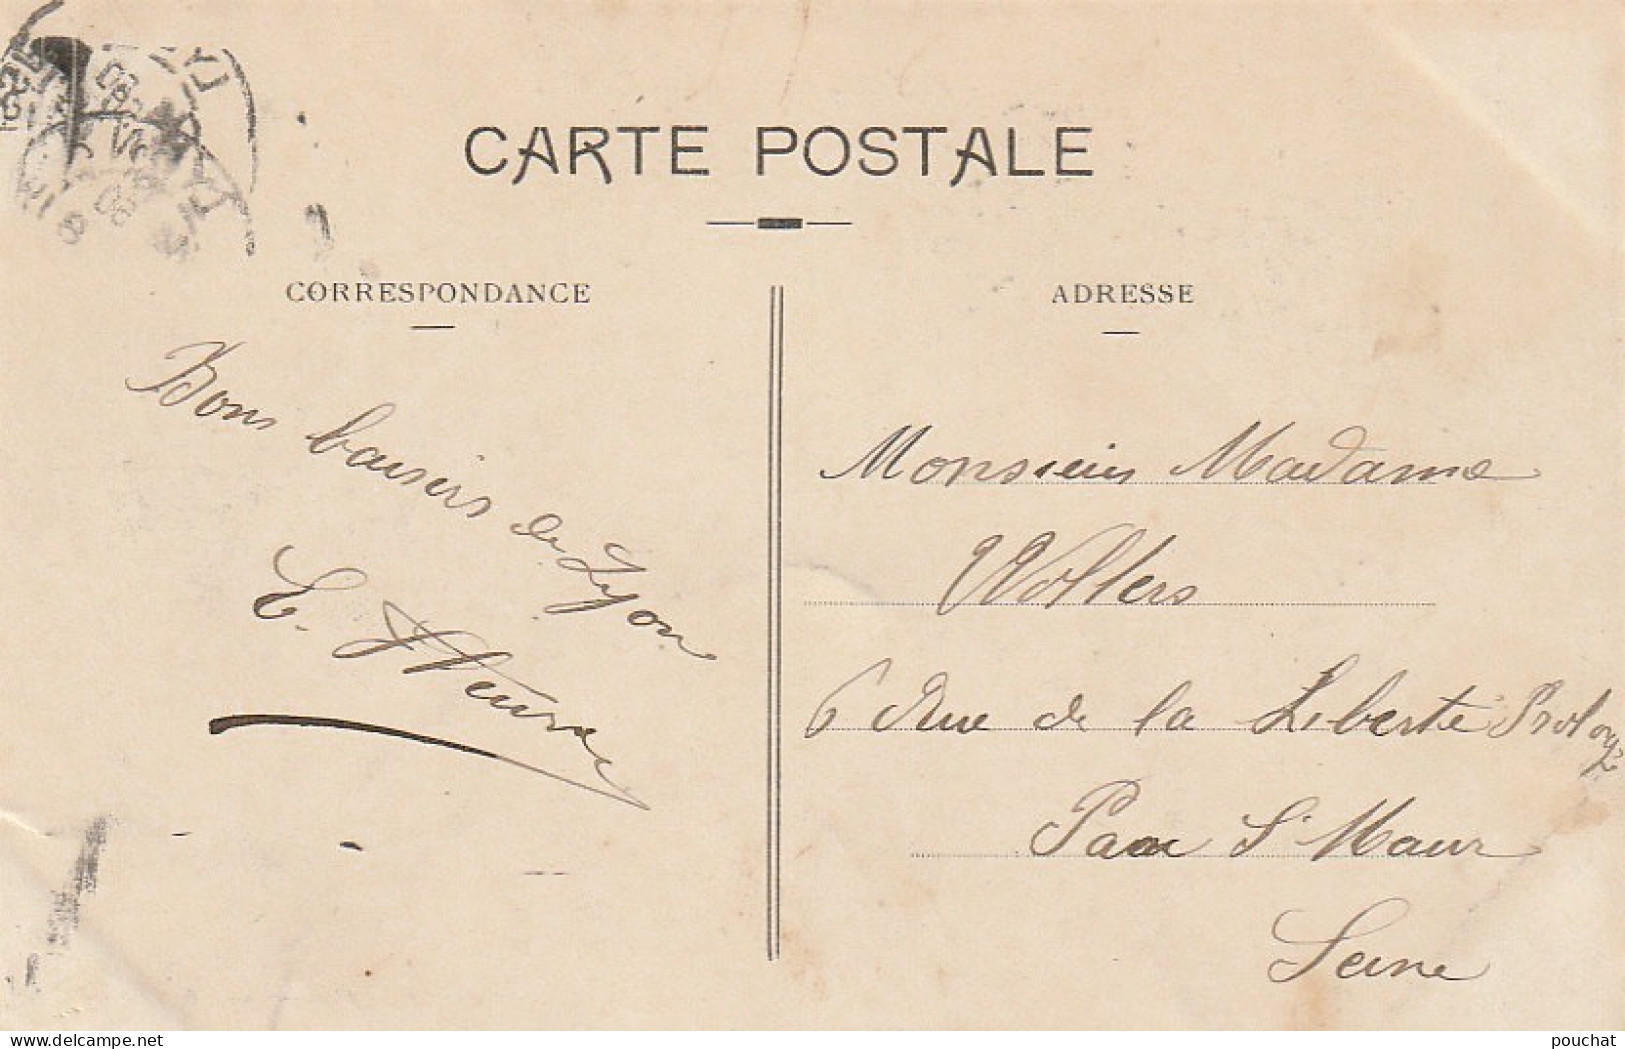 CARTE POSTALE
CORRESPONDANCE
ADRESSE
Bons baisers de Lyon
E.
Monsieur Madame
Wolters
6 Rue de la Liberté Prolongé
Parc St Maur
Seine
delcampe.net
pouchat